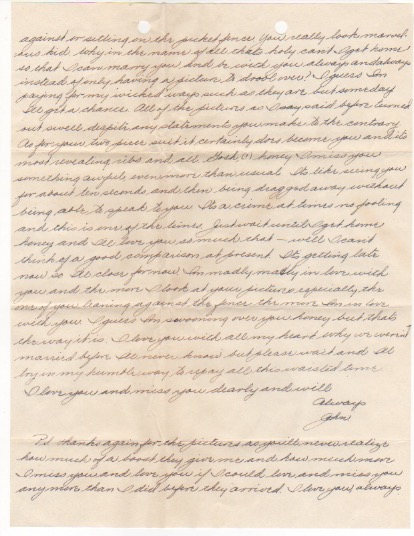 against or setting on the picket fence You really look marvel-
ous kid Why in the name of all thats holy cant I get home
so that I can marry you and be with you always and always
instead of only having a picture to drool over? I guess Im
paying for my wicked ways such as they are but someday
Ill get a chance All of the pictures as I say said before turned
out swell despite any statements you make to the contrary
As for your two piece suit it certainly does become you and its
most revealing ribs and all Gosh honey I miss you
something awful even more than usual Its like seeing you
for about ten seconds and then being dragged away without
being able to speak to you Its a crime at times no fooling
and this is one of the times Just wait until I get home
honey and Ill love you so much that - well I cant
think of a good comparison at present Its getting late
now so Ill close for now Im madly, madly in love with
you and the more I look at your picture especially the
one of you leaning against the fence the more Im in love
with you I guess Im swooning over you honey but thats
the way it is I love you with all my heart why we weren't
married before Ill never know but please wait and Ill
try in my humble way to repay all this waisted time
I love you and miss you dearly and will
Always
John
P.S. thanks again for the pictures as you'll never realize
how much of a boost they give me and how much more
I miss you and love you if I could love and miss you
anymore than I did before they arrived I love you, always